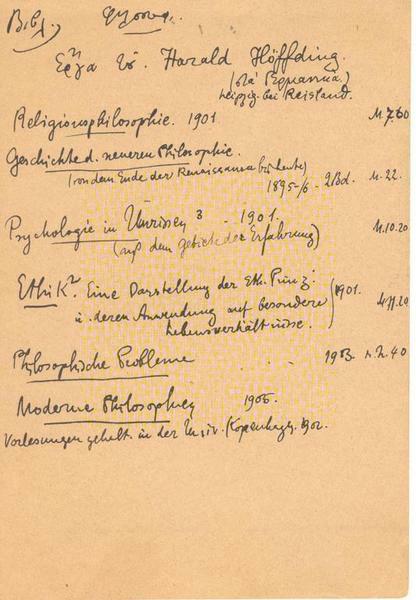 Βιβλ. φιλοσοφ.
Ἔργα ὑ. Harald Höffding.
(στὰ Γερμανικὰ.)
Leipzig. bei Reisland.
Religionsphilosophie. 1901 M. 7.60
Geschichte d. neueren Philosophie.
(von dem Ende der Renaissance bis heute)
1895-/6 - 2 Bd. M. 22.
Psychologie in Umrissen 3 - 1901. M. 10.20
(auf dem Gebiete der Erfahrung)
Ethik 2. Eine Darstellung der Eth. Prinz.
u. deren Anwendung auf besondere 1901. M 11.20
Lebensverhältnisse.
Philosophische Probleme 1903. M. 2.40
Moderne Philosophen 1905.
Vorlesungen gehalt. in der Univ. Kopenhagen. 1902.